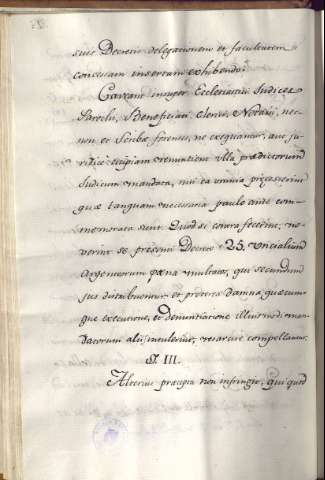 suis Decretis delegationem et facultatem
concessam insertam exhibendo.
Caveant insuper Ecclesiastici Judices
Parochi, Beneficiati, Clerici, Notarii, nec
non et Scribæ forenses, ne exequantur, aut ju
ridice recipiant renuntient ulla prædictorum
Judicum mandata, nisi ea omnia præcesserint
quæ tanquam necessaria paulo ante com
memorata sunt. Quod si contra fecerint, no
verint se præsenti Decreto 25. uncialium
Argenteorum pæna multatos, qui secundum
jus distribuentur et præterea damna, quæcum
que executione, et denuntiatione illiusmodi man
datorum alii intulerint, resarcire compellantur.
§. III.
Alterius præcepta non infringit, qui quid